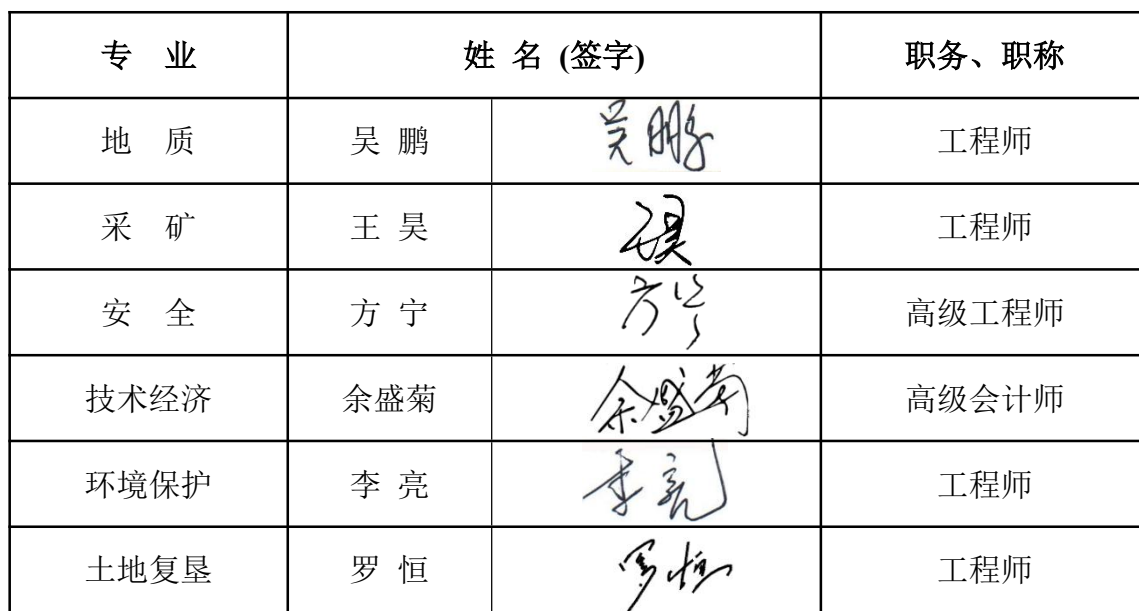 专 业 姓 名 (签字) 职务、职称
地 质 吴 鹏 吴鹏 工程师
采 矿 王 昊 王昊 工程师
安 全 方 宁 方宁 高级工程师
技术经济 余盛菊 余盛菊 高级会计师
环境保护 李 亮 李亮 工程师
土地复垦 罗 恒 罗恒 工程师